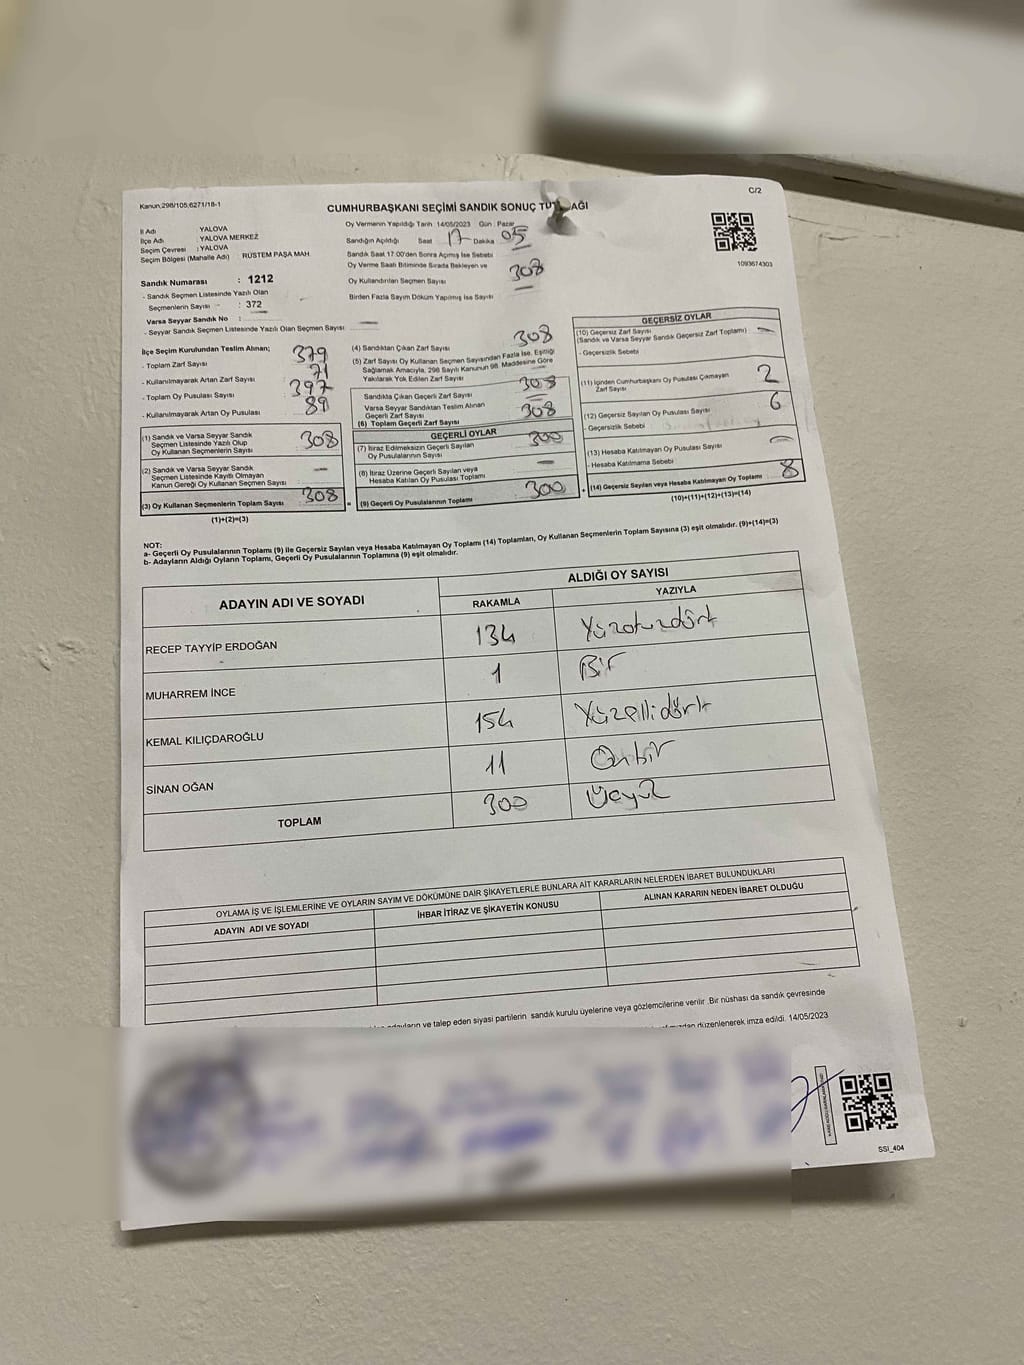 C/2
Kanun.298/105,6271/18-1
CUMHURBAŞKANI SEÇİMİ SANDIK SONUÇ AĞI
İl Adı : YALOVA
İlçe Adı : YALOVA MERKEZ
Seçim Çevresi : YALOVA
Seçim Bölgesi (Mahalle Adı) : RÜSTEM PAŞA MAH.
Sandık Numarası : 1212
- Sandık Seçmen Listesinde Yazılı Olan
Seçmenlerin Sayısı : 372
Varsa Seyyar Sandık No :
- Seyyar Sandık Seçmen Listesinde Yazılı Olan Seçmen Sayısı : —
Oy Vermenin Yapıldığı Tarih: 14/05/2023 Gün : Pazar
Sandığın Açıldığı Saat 17 Dakika 05
Sandık Saat 17:00'den Sonra Açılmış İse Sebebi
Oy Verme Saati Bitiminde Sırada Bekleyen ve
Oy Kullandırılan Seçmen Sayısı 308
Birden Fazla Sayım Döküm Yapılmış İse Sayısı
1093674303
İlçe Seçim Kurulundan Teslim Alınan;
- Toplam Zarf Sayısı 379
- Kullanılmayarak Artan Zarf Sayısı 71
- Toplam Oy Pusulası Sayısı 397
- Kullanılmayarak Artan Oy Pusulası 89
(1) Sandık ve Varsa Seyyar Sandık
Seçmen Listesinde Yazılı Olup
Oy Kullanan Seçmenlerin Sayısı 308
(2) Sandık ve Varsa Seyyar Sandık
Seçmen Listesinde Kayıtlı Olmayan
Kanun Gereği Oy Kullanan Seçmen Sayısı —
(3) Oy Kullanan Seçmenlerin Toplam Sayısı 308
(1)+(2)=(3)
(4) Sandıktan Çıkan Zarf Sayısı 308
(5) Zarf Sayısı Oy Kullanan Seçmen Sayısından Fazla İse, Eşitliği
Sağlamak Amacıyla, 298 Sayılı Kanunun 98. Maddesine Göre
Yakılarak Yok Edilen Zarf Sayısı
Sandıkta Çıkan Geçerli Zarf Sayısı 308
Varsa Seyyar Sandıktan Teslim Alınan
Geçerli Zarf Sayısı
(6) Toplam Geçerli Zarf Sayısı 308
GEÇERLİ OYLAR
(7) İtiraz Edilmeksizin Geçerli Sayılan
Oy Pusulalarının Sayısı 300
(8) İtiraz Üzerine Geçerli Sayılan veya
Hesaba Katılan Oy Pusulası Toplamı —
= (9) Geçerli Oy Pusulalarının Toplamı 300
GEÇERSİZ OYLAR
(10) Geçersiz Zarf Sayısı
(Sandık ve Varsa Seyyar Sandık Geçersiz Zarf Toplamı) —
- Geçersizlik Sebebi
(11) İçinden Cumhurbaşkanı Oy Pusulası Çıkmayan
Zarf Sayısı 2
(12) Geçersiz Sayılan Oy Pusulası Sayısı 6
- Geçersizlik Sebebi
(13) Hesaba Katılmayan Oy Pusulası Sayısı —
- Hesaba Katılmama Sebebi
+ (14) Geçersiz Sayılan veya Hesaba Katılmayan Oy Toplamı 8
(10)+(11)+(12)+(13)=(14)
NOT:
a- Geçerli Oy Pusulalarının Toplamı (9) ile Geçersiz Sayılan veya Hesaba Katılmayan Oy Toplamı (14) Toplamları, Oy Kullanan Seçmenlerin Toplam Sayısına (3) eşit olmalıdır. (9)+(14)=(3)
b- Adayların Aldığı Oyların Toplamı, Geçerli Oy Pusulalarının Toplamına (9) eşit olmalıdır.
ADAYIN ADI VE SOYADI
ALDIĞI OY SAYISI
RAKAMLA YAZIYLA
RECEP TAYYİP ERDOĞAN 134 Yüzotuzdört
MUHARREM İNCE 1 Bir
KEMAL KILIÇDAROĞLU 154 Yüzellidört
SİNAN OĞAN 11 Onbir
TOPLAM 300 Üçyüz
OYLAMA İŞ VE İŞLEMLERİNE VE OYLARIN SAYIM VE DÖKÜMÜNE DAİR ŞİKAYETLERLE BUNLARA AİT KARARLARIN NELERDEN İBARET BULUNDUKLARI
ADAYIN ADI VE SOYADI İHBAR İTİRAZ VE ŞİKAYETİN KONUSU ALINAN KARARIN NEDEN İBARET OLDUĞU
ve talep eden siyasi partilerin sandık kurulu üyelerine veya gözlemcilerine verilir .Bir nüshası da sandık çevresinde
düzenlenerek imza edildi. 14/05/2023
SSI_404